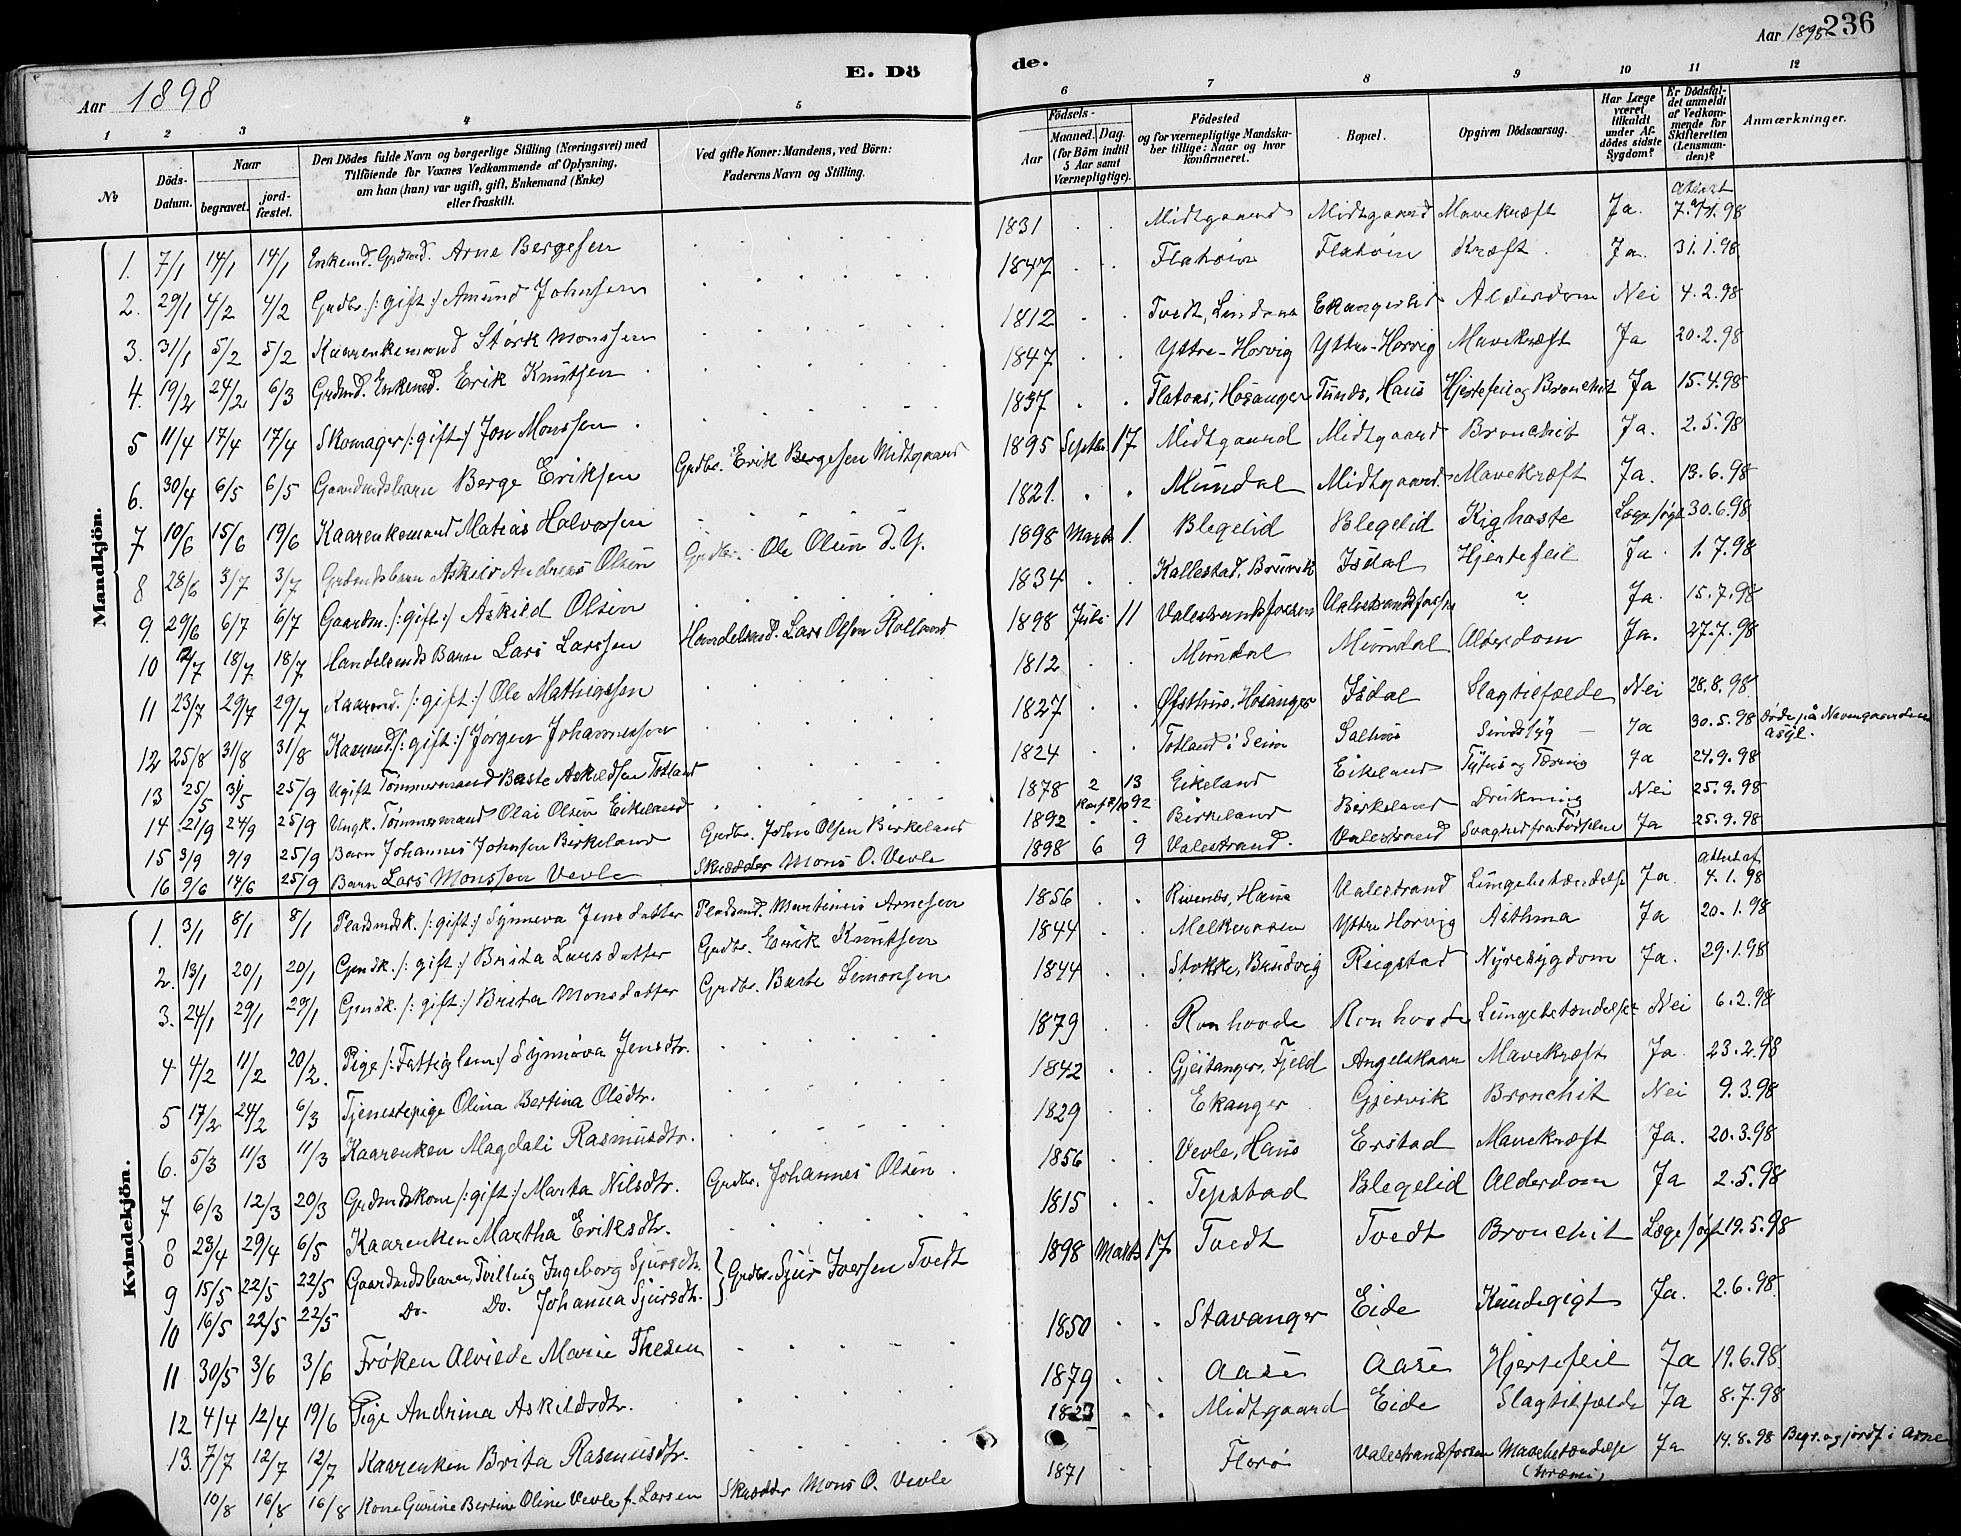 236
Aar 1898
E. Dö
de.
Aar 1898
1 2 3 4 5 6 7 8 9 10 11 12
№
Döds-Datum.
Naar
begravet.
jord-fæstet.
Den Dödes fulde Navn og borgerlige Stilling (Næringsvei) med
Tilföiende for Voxnes Vedkommende af Oplysning,
om han (hun) var ugift, gift, Enkemand (Enke)
eller fraskilt.
Ved gifte Koner: Mandens, ved Börn:
Faderens Navn og Stilling.
Födsels-
Aar
Maaned. Dag.
(for Börn indtil
5 Aar samt
Værnepligtige).
Födested
og for værnepligtige Mandska-
ber tillige: Naar og hvor
konfirmeret.
Bopæl.
Opgiven Dödsaarsag.
Har Læge
været
tilkaldt
under Af-
dödes sidste
Sygdom?
Er Dödsfal-
det anmeldt
af Vedkom-
mende for
Skifteretten
(Lensman-
den)?
Anmærkninger.
Mandkjön.
1. 7/1 14/1 14/1 Enkemd. Grdmd. Arne Bergesen 1831 Midtgaard Midtgaard Mavekræft Ja. Attest 98
2. 29/1 4/2 4/2 Grdbr. /: gift :/ Amund Johnsen 1847 Flatöin Flatöin Kræft Ja. 31.1.98
3. 31/1 5/2 5/2 Kaarenkemand Störk Monssen 1812 Tvedt, Lindaas Ekangerlid Alderdom Nei 4.2.98
4. 19/2 24/2 6/3 Grdmd. Enkemd. Erik Knutsen 1847 Yttre-Horvig Yttre-Horvig Mavekræft Ja 20.2.98
5 11/4 17/4 17/4 Skomager /: gift :/ Jon Monssen 1837 Flatöas, Hosanger Tunds, Haus Hjertefeil og Bronchit Ja 15.4.98
6. 30/4 6/5 6/5 Gaardmdsbarn Berge Eriksen Grdbr. Erik Bergesen Midtgaard 1895 Septbr. 17 Midtgaard Midtgaard Bronchit Ja. 2.5.98
7 10/6 15/6 19/6 Kaarenkemand Matias Halvorsen 1821 Mundal Midtgaard Mavekræft Ja. 13.6.98
8 28/6 3/7 3/7 Grdmdsbarn Askild Andreas Olsen Grdbr. Ole Olsen d. Y. 1898 Marts 1. Blegelid Blegelid Kighoste Læge sögt 30.6.98
9. 29/6 6/7 6/7 Gaardm. /: gift :/ Askild Olsen 1834 Kallestad, Bruvik Isdal Hjertefeil Ja 1.7.98
10 12/7 18/7 18/7 Handelsmds Barn Lars Larssen Handelsmd. Lars Olsen Rolland 1898 Juli 11 Valestrandsfossen Valestrandsfossen ? Ja. 15.7.98
11 23/7 29/7 29/7 Kaarmd. /: gift :/ Ole Mathiassen 1812 Mundal Mundal Alderdom Ja. 27.7.98
12 25/8 31/8 31/8 Kaarmd /: gift :/ Jörgen Johannessen 1827 Öfsthus, Hosanger Isdal Slagtilfælde Nei 28.8.98
13 25/5 31/5 25/9 Ugift Tömmermand Baste Askildsen Totland 1824 Totland i Seim Salhus Sindssyg Ja 30.5.98 Döde på Neevengaardens Asyl.
14 21/9 24/9 25/9 Ungk. Tömmermand Olai Olsen Eikeland 1878 2 13 Konf 2/10 92 Eikeland Eikeland Tyfus og Tæring Ja 24.9.98
15 3/9 9/9 25/9 Barn Johannes Johnsen Birkeland Grdbr. John Olsen Birkeland 1892 Birkeland Birkeland Drukning Nei 25.9.98
16 9/6 14/6 25/9 Barn Lars Monssen Vevle Skrædder Mons O. Vevle 1898 6 9 Valestrand. Valestrand Svaghed fra Födselen Ja 25.9.98
Kvindekjön.
1. 3/1 8/1 8/1 Pladsmdsk. /: gift :/ Synneva Jensdatter Pladsmd. Martinus Arnesen 1856 Rivenes, Haus Valestrand Lungebetændelse Ja Attest af 4.1.98
2. 13/1 20/1 20/1 Grmdk. /: gift :/ Brita Larsdatter Grdbr. Erik Knutsen 1844 Melkeraaen Yttre Horvig Asthma Ja 20.1.98
3. 24/1 29/1 29/1 Grmdk. /: gift :/ Brita Monsdatter Grdbr. Baste Simonsen 1844 Stokke, Bruvig Reigstad Nyresygdom Ja. 29.1.98
4 4/2 11/2 20/2. Pige /: Fattiglem :/ Synnöva Jensdtr. 1879 Ronhovde Ronhovde Lungebetændelse Nei 6.2.98
5 17/2 24/2 6/3 Tjenestepige Olina Bertina Olsdtr. 1842 Gjeitanger, Fjeld Angelskaar Mavekræft Ja 23.2.98
6. 5/3 11/3 11/3 Kaarenken Magdali Rasmusdtr. 1829 Ekanger Gjervik Bronchit Nei 9.3.98
7 6/3 12/3 20/3 Grdmdskone /: gift :/ Marta Nilsdtr. Grdbr. Johannes Olsen 1856 Vevle, Haus Erstad Mavekræft Ja. 20.3.98
8 23/4 29/4 6/5 Kaarenken Martha Eriksdtr. 1815 Tepstad Blegelid Alderdom Ja 2.5.98
9 15/5 22/5 22/5 Gaardmdsbarn, Tvilling Ingeborg Sjursdtr. Grdbr. Sjur Iversen Tvedt 1898 Marts 17 Tvedt Tvedt Bronchit Læge sögt 19.5.98
10 16/5 22/5 22/5 Do. Do. Johanna Sjursdtr.
11 30/5 3/6 3/6 Fröken Alvilde Marie Thesen 1850 Stavanger Eide Knudegigt Ja. 2.6.98
12 4/4 12/4 19/6 Pige Andrina Askildsdtr. 1879 Aase Aase Hjertefeil Ja 19.6.98
13. 7/7 12/7 12/7 Kaarenken Brita Rasmusdtr. 1823 Midtgaard Eide Slagtilfælde Ja 8.7.98
10/8 16/8 16/8 Kone Gurine Bertine Oline Vevle f. Larsen Skrædder Mons O. Vevle 1871 Florö Valestrandsfossen Mavebetændelse (Uræmi) Ja 14.8.98 Begr. og jordf. i Arne